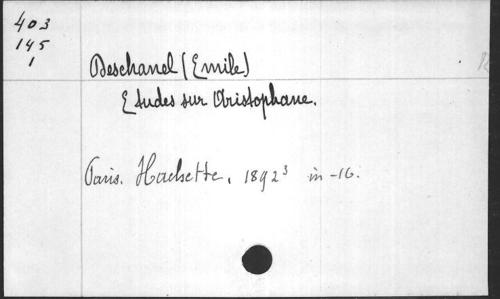 403
145
1
Deschanel (Emile)
Etudes sur Aristophane.
Paris. Hachette. 1892³ in-16.